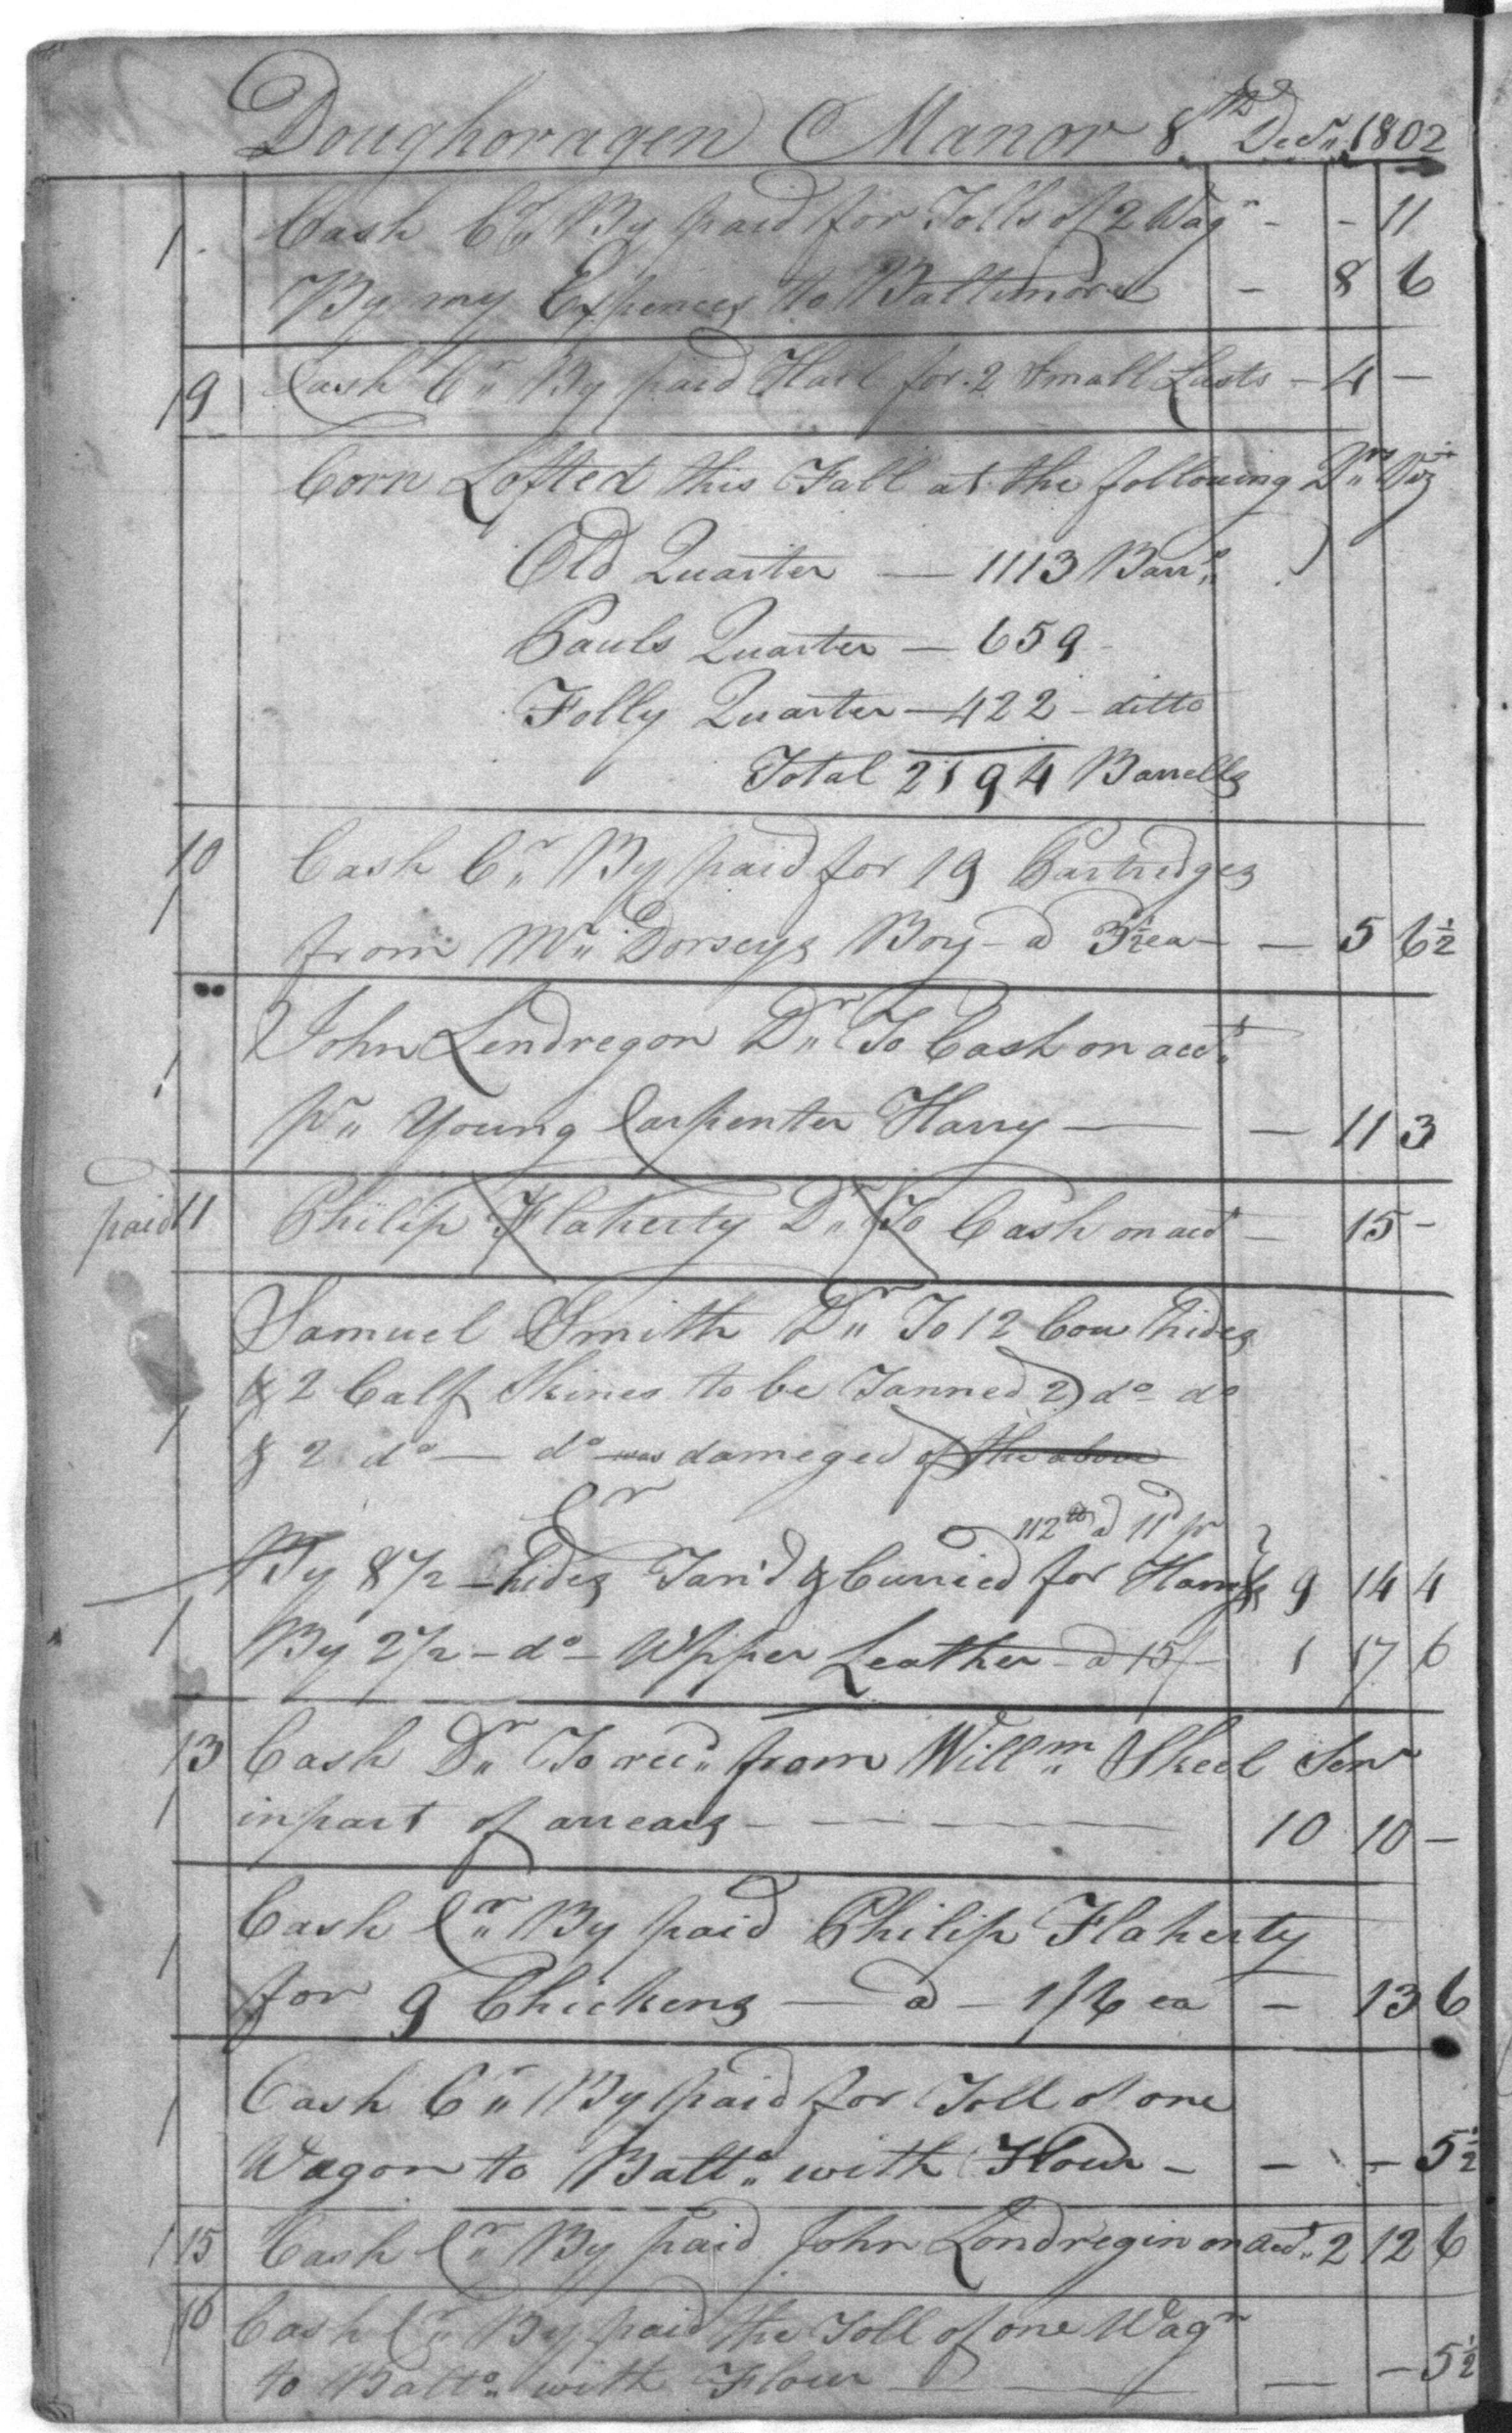 Doughoragen Manor 8th Decr 1802
1 Cash Cr By paid for Tolls of 2 Wagn - - 11
By my Expences to Baltimore - 8 6
9 Cash Cr By paid Hail for 2 Small Lasts - 4 -
Corn Lofted this Fall at the following Qrs Viz
Old Quarter — 1113 Barrs
Pauls Quarter — 659 -
Folly Quarter — 422 - ditto
Total 2194 Barrells
10 Cash Cr By paid for 19 Partridges
from Mr Dorseys Boy - a 3½ ea - — 5 6½
John Lendregon Dr To Cash on acct
pr Young Carpenter Harry — — 11 3
paid 11 Philip Flaherty Dr To Cash on acct — 15 -
Samuel Smith Dr To 12 Cow hides
& 2 Calf Skines to be Tanned 2 do do
& 2 do — do was dameged of the above
Cr
112 lb a 11d pr
By 8½ - hides Tan'd & Curried for 9 14 4
By 2½ - do - Upper Leather - a 15/ - 1 17 6
13 Cash Dr To recd from Willm Skeel Senr
in part of arrears - — — — 10 10 -
Cash Cr By paid Philip Flaherty
for 9 Chickens — a - 1/6 ea - 13 6
Cash Cr By paid for Toll of one
Wagon to Balto with Flour - - - 5½
15 Cash Cr By paid John Londregin on acct 2 12 6
16 Cash Cr By paid the Toll of one Wagn
to Balto with Flour — — - 5½